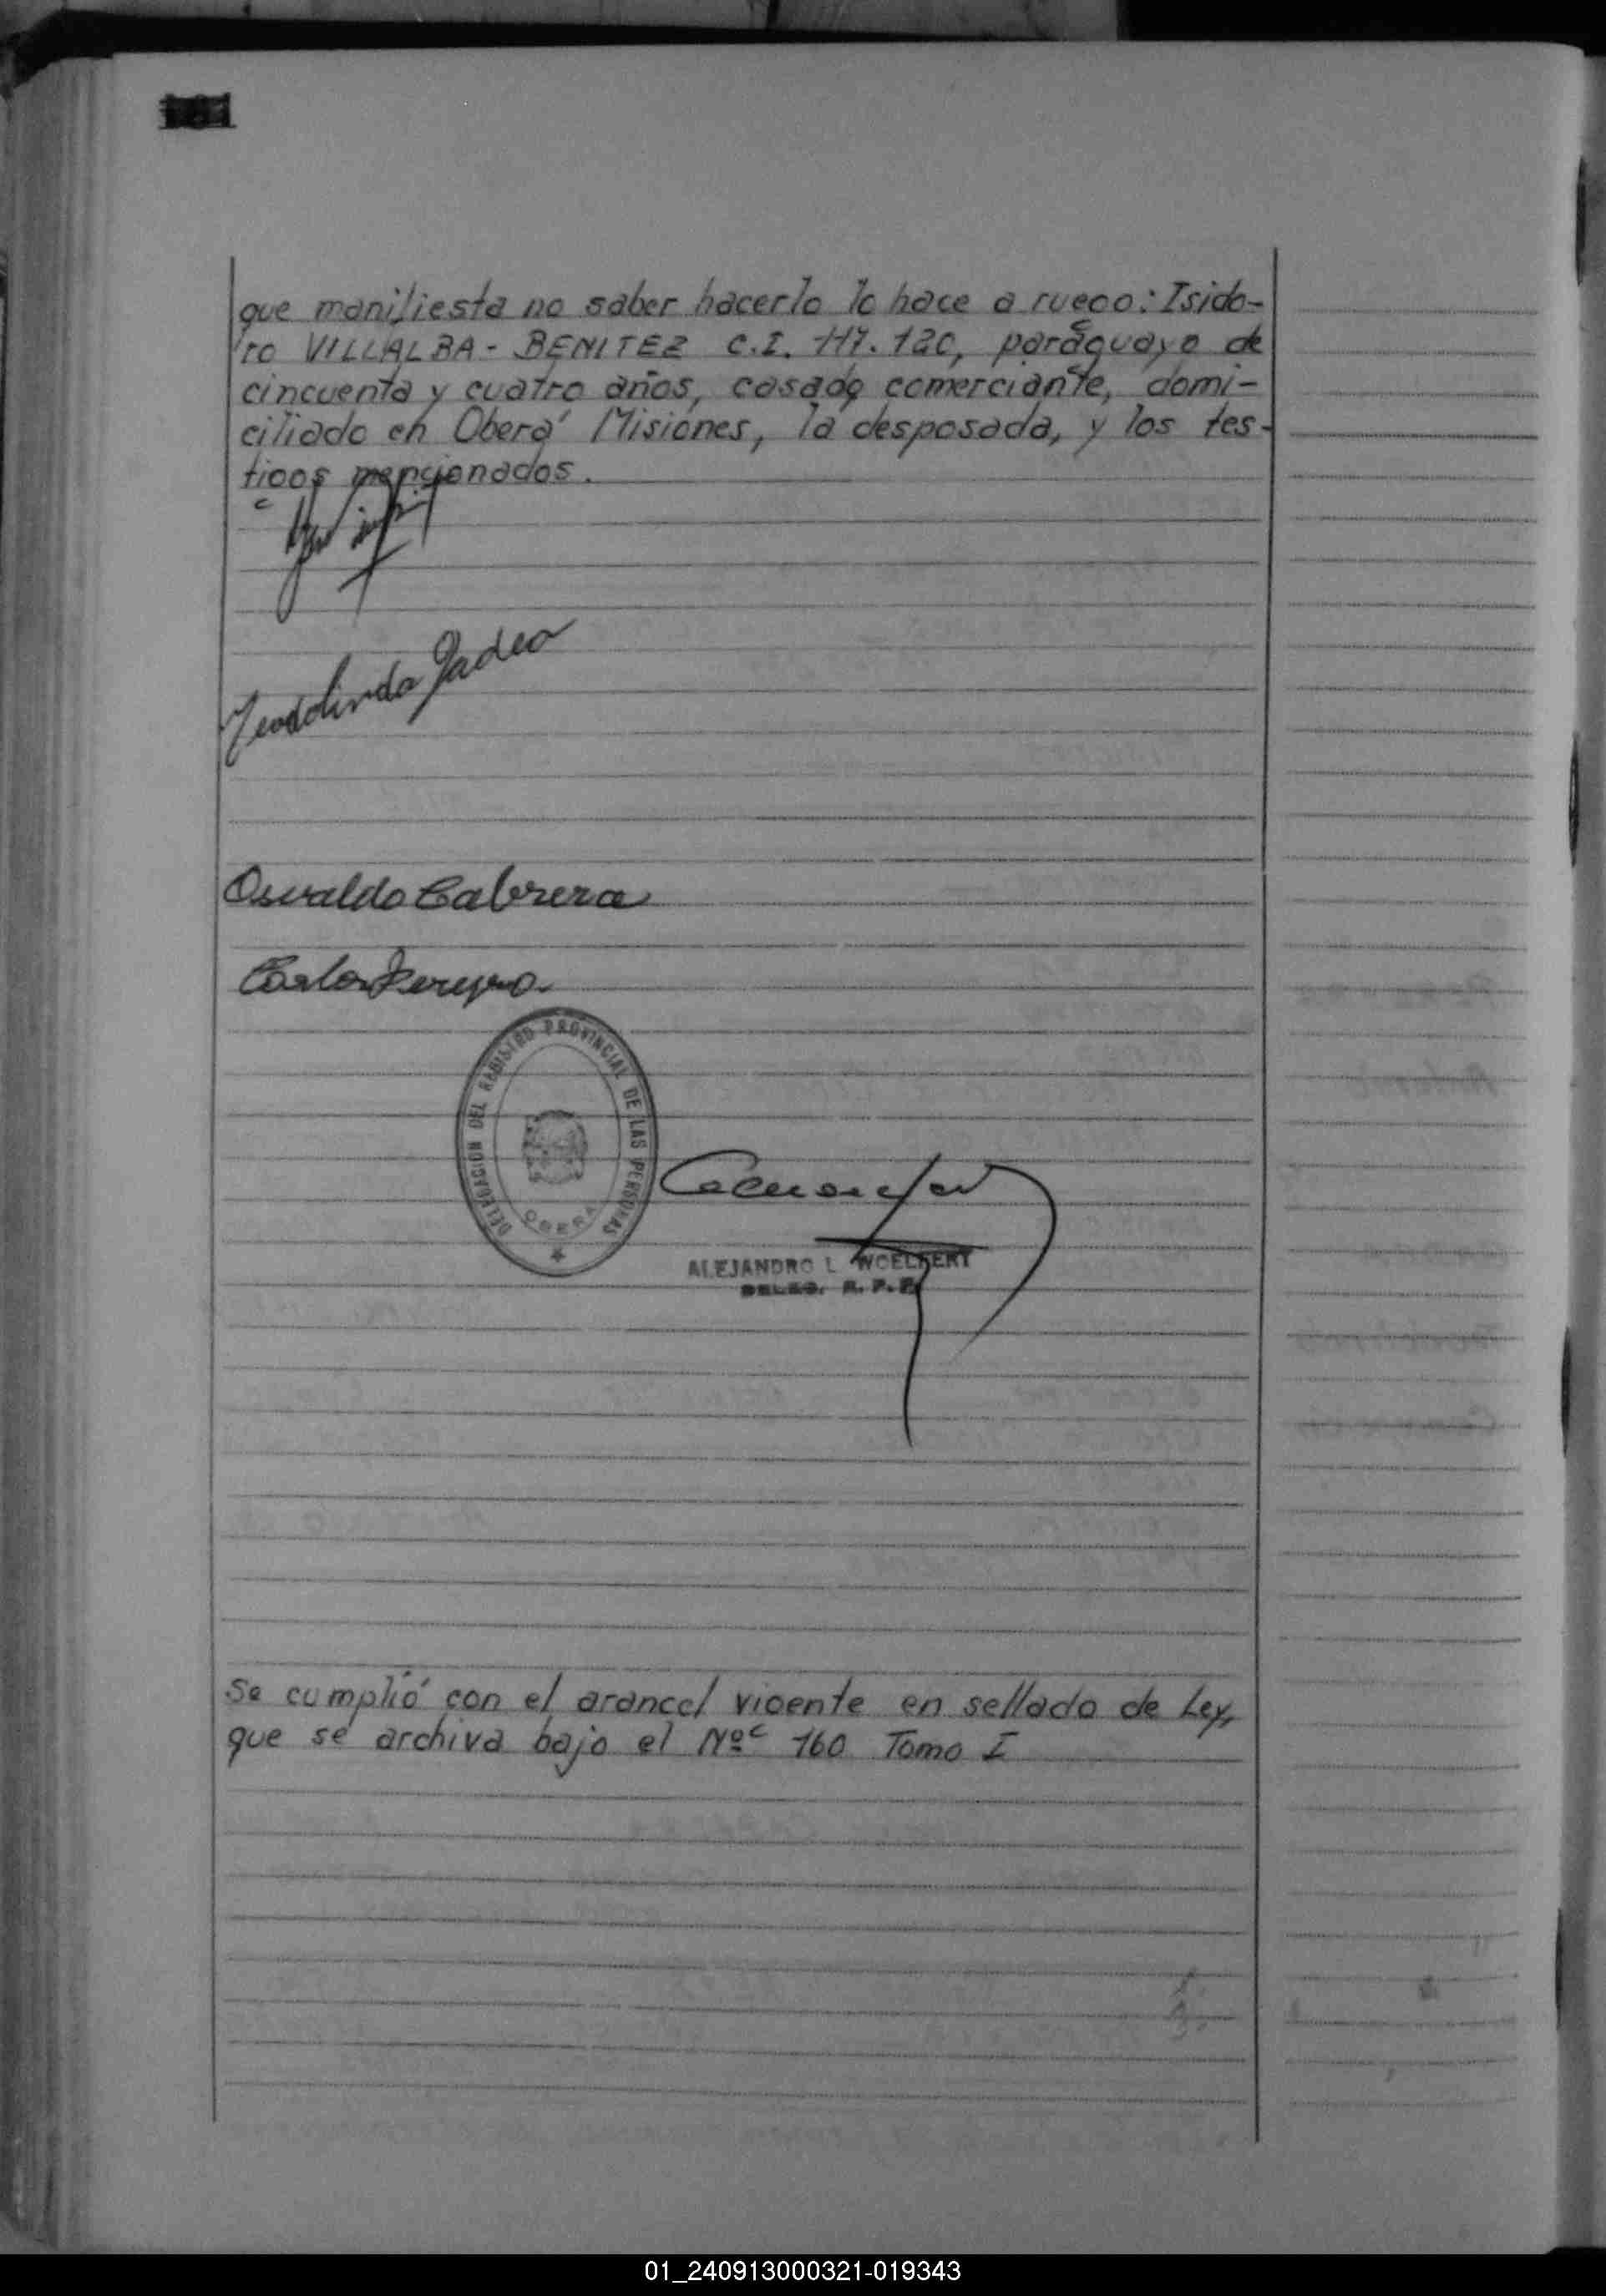 que manifiesta no saber hacerlo lo hace a ruego: Isido-
ro VILLALBA - BENITEZ C.I. 117.120, paraguayo de
cincuenta y cuatro años, casado comerciante, domi-
ciliado en Oberá Misiones, la desposada, y los tes-
tigos mencionados.
Teodolinda
Osvaldo Cabrera
Carlos Pereyra
DELEGACION DEL REGISTRO PROVINCIAL DE LAS PERSONAS
OBERA
ALEJANDRO L. WOELFERT
DELEG. R. P. P.
Se cumplió con el arancel vigente en sellado de Ley,
que se archiva bajo el Nº 160 Tomo I
01_240913000321-019343